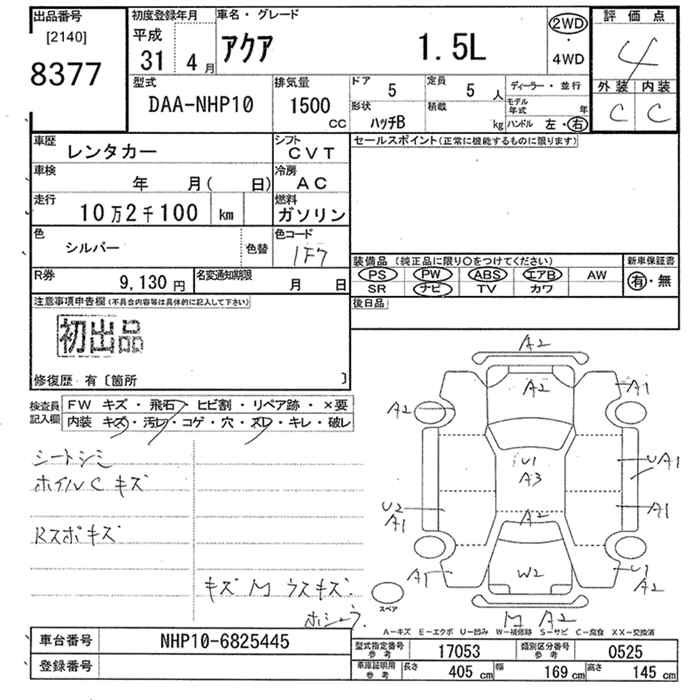 出品番号 初度登録年月 車名・グレード 評価点
[2140] 平成 アクア 1.5L 2WD・4WD 4
8377 31年 4月 外装 内装
C C
型式 排気量 ドア 5 定員 5人 ディーラー・並行
DAA-NHP10 1500 CC 形状 ハッチB 積載 kg モデル年式 年
ハンドル 左・右
車歴 レンタカー シフト CVT セールスポイント(正常に機能するものに限ります)
車検 年 月( 日) 冷房 AC
走行 10万2千100 km 燃料 ガソリン
色 シルバー 色替 色コード 1F7
装備品(純正品に限り○をつけてください) 新車保証書
PS PW ABS エアB AW 有・無
SR ナビ TV カワ
R券 9,130円 名変通知期限 月 日
後日品
注意事項申告欄(不具合内容等は具体的に記入して下さい)
初出品
修復歴 有〔箇所 〕
検査員記入欄 FW キズ・飛石・ヒビ割・リペア跡・×要
内装 キズ・汚レ・コゲ・穴・スレ・キレ・破レ
シートシミ
ホイルC キズ
Rスポキズ
キズ M ウスキズ
A2
A2
A1
A2
U1
A3
UA1
U2
A1
A2
A1
A1
W2
U1
A2
M A2
スペア
A-キズ E-エクボ U-凹み W-補修跡 S-サビ C-腐食 XX-交換済
車台番号 NHP10-6825445
登録番号
型式指定番号 参考 17053 類別区分番号 参考 0525
車庫証明用 参考 長さ 405cm 幅 169cm 高さ 145cm